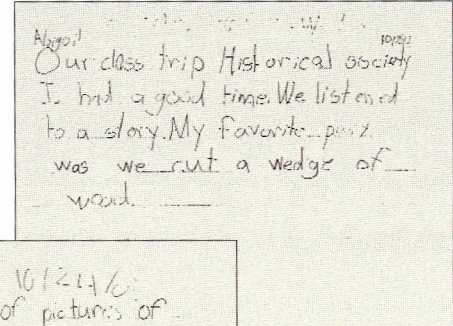 Abigail
Our class trip Historical society
I had a good time. We listened
to a story. My favorite part
was we cut a wedge of
wood
of pictures of